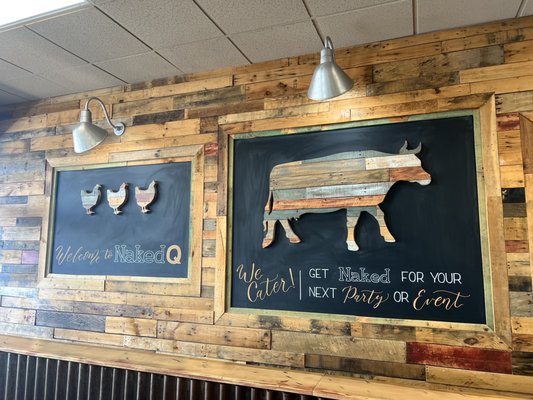 Welcome to NakedQ
We Cater!
GET Naked FOR YOUR
NEXT Party OR Event